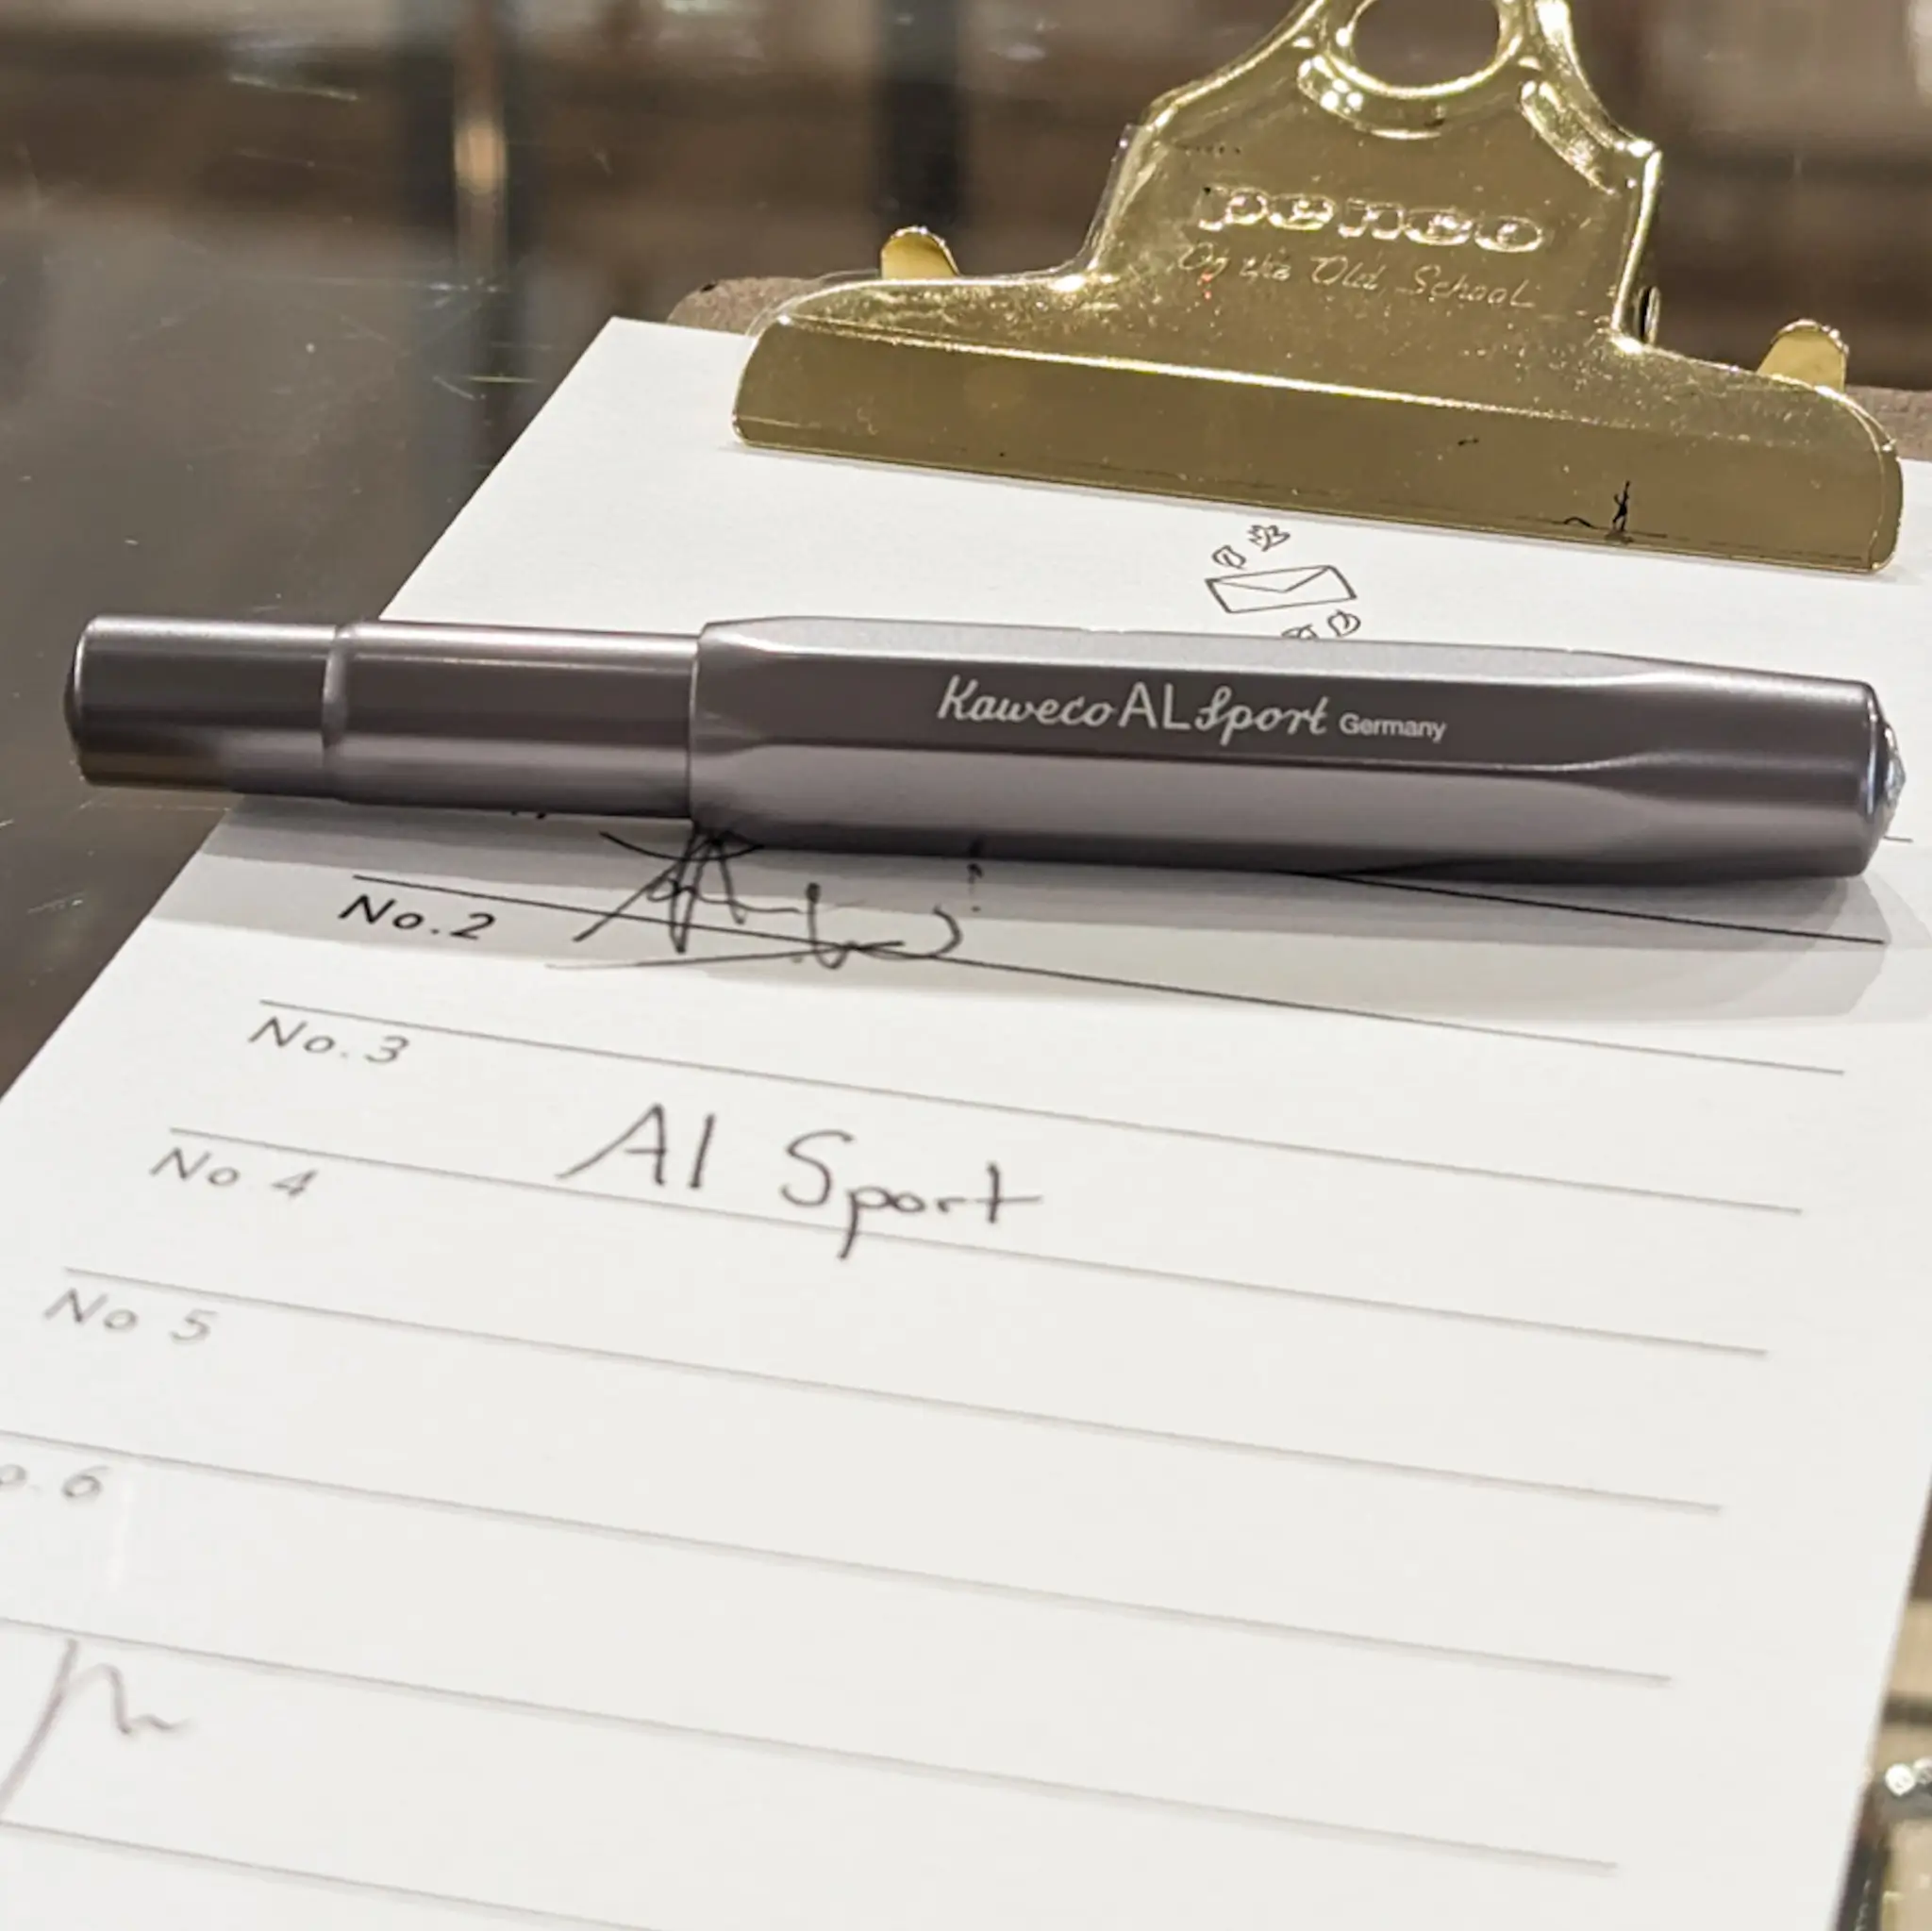 penco
On the Old School
Kaweco AL Sport Germany
No.2
No.3
Al Sport
No 4
No 5
o.6